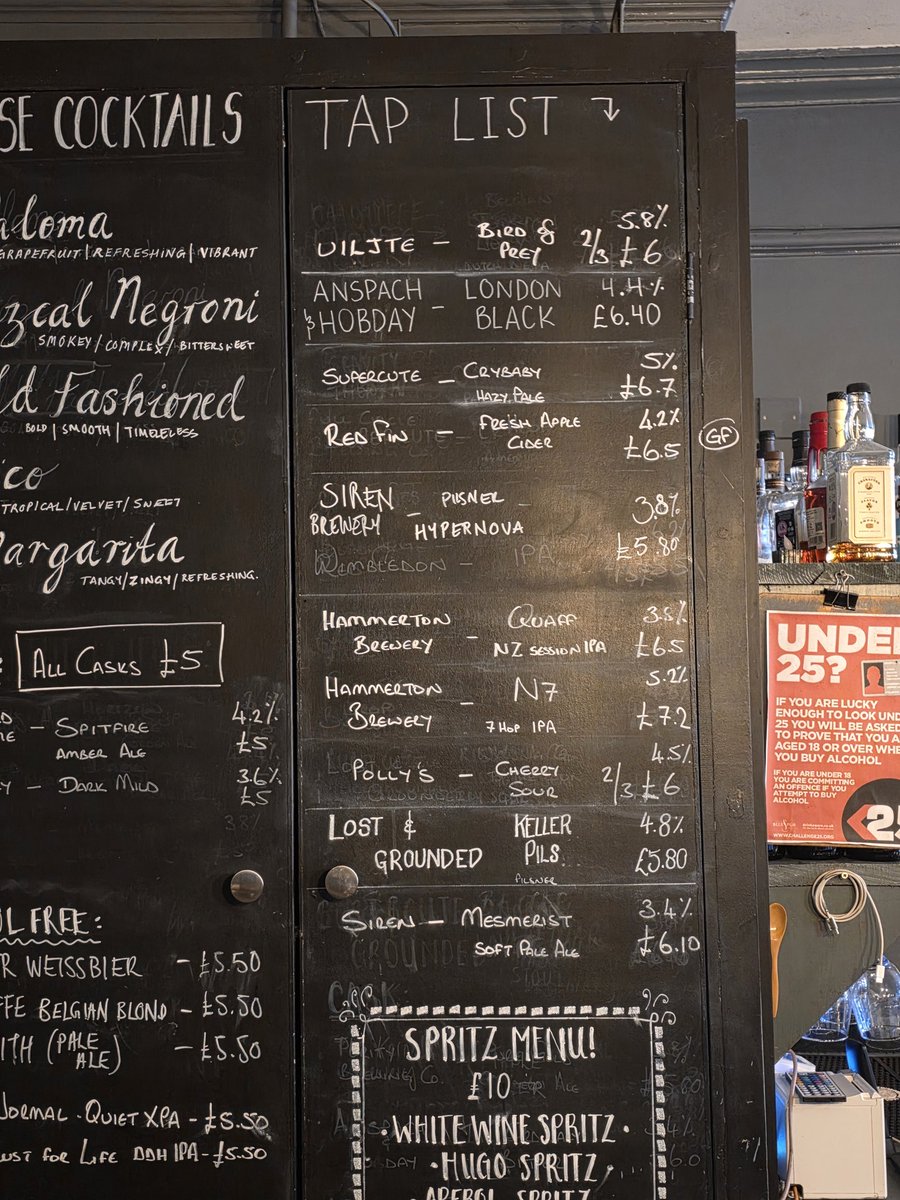 SE COCKTAILS
aloma
GRAPEFRUIT / REFRESHING / VIBRANT
zcal Negroni
SMOKEY / COMPLEX / BITTERSWEET
ld Fashioned
BOLD | SMOOTH | TIMELESS
ico
TROPICAL / VELVET / SWEET
Margarita
TANGY / ZINGY / REFRESHING.
ALL CASKS £5
SPITFIRE 4.2%
AMBER ALE £5
Y - DARK MILD 3.6%
£5
L FREE:
R WEISSBIER - £5.50
FFE BELGIAN BLOND - £5.50
ITH (PALE ALE) - £5.50
NORMAL - QUIET XPA - £5.50
UST FOR LIFE DDH IPA - £5.50
TAP LIST
UILJTE - BIRD & PREY 5.8%
2/3 £6
ANSPACH & HOBDAY - LONDON BLACK 4.4%
£6.40
SUPERCUTE - CRYBABY 5%
HAZY PALE £6.7
RED FIN - FRESH APPLE CIDER 4.2%
£6.5
GF
SIREN BREWERY - PILSNER HYPERNOVA 3.8%
£5.80
WEMBLEDON - IPA
HAMMERTON BREWERY - QUAFF 3.5%
NZ SESSION IPA £6.5
HAMMERTON BREWERY - N7 5.2%
7 HOP IPA £7.2
POLLY'S - CHERRY SOUR 4.5%
2/3 £6
LOST & GROUNDED KELLER PILS... 4.8%
PILSNER £5.80
SIREN - MESMERIST 3.4%
SOFT PALE ALE £6.10
CASK:
SPRITZ MENU!
£10
· WHITE WINE SPRITZ ·
· HUGO SPRITZ ·
APEROL SPRITZ
UNDER
25?
IF YOU ARE LUCKY
ENOUGH TO LOOK UND
25 YOU WILL BE ASKED
TO PROVE THAT YOU A
AGED 18 OR OVER WHE
YOU BUY ALCOHOL
IF YOU ARE UNDER 18
YOU ARE COMMITTING
AN OFFENCE IF YOU
ATTEMPT TO BUY
ALCOHOL
<25
WWW.CHALLENGE25.ORG